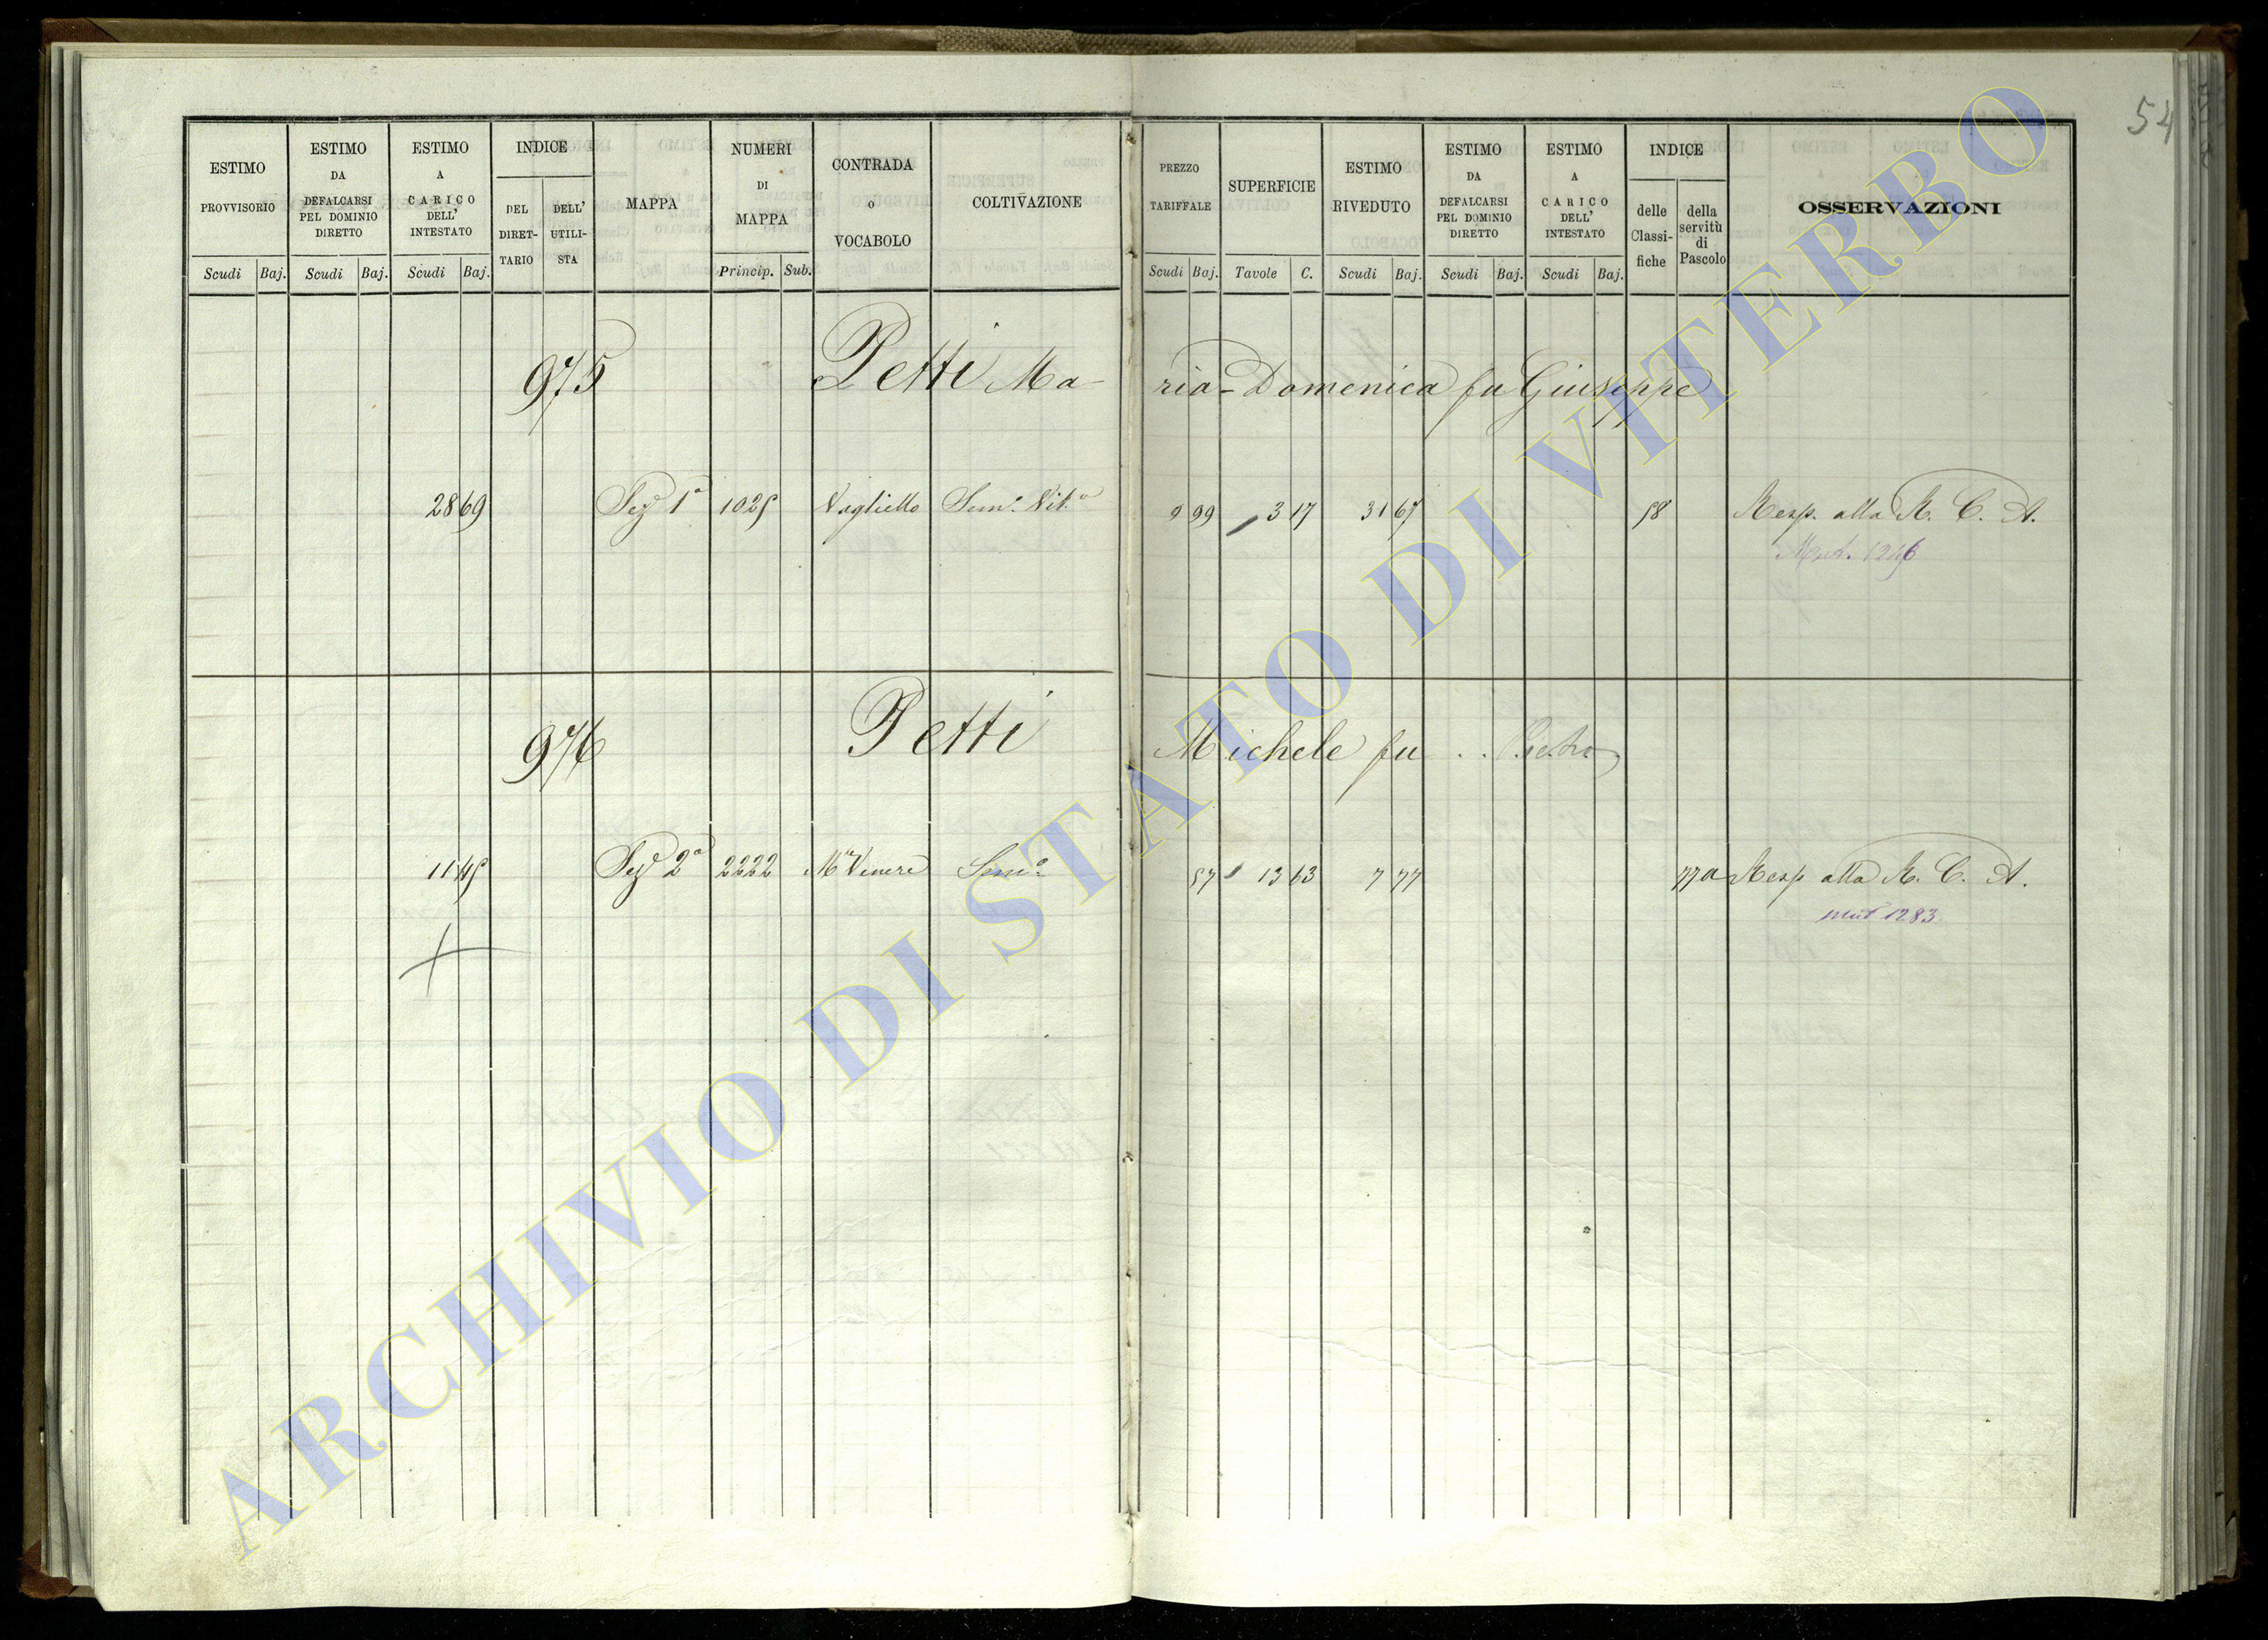 54
ESTIMO PROVVISORIO
Scudi Baj.
ESTIMO DA DEFALCARSI PEL DOMINIO DIRETTO
Scudi Baj.
ESTIMO A CARICO DELL' INTESTATO
Scudi Baj.
INDICE
DEL DIRET-TARIO
DELL' UTILI-STA
MAPPA
NUMERI DI MAPPA
Princip. Sub.
CONTRADA o VOCABOLO
COLTIVAZIONE
PREZZO TARIFFALE
Scudi Baj.
SUPERFICIE
Tavole C.
ESTIMO RIVEDUTO
Scudi Baj.
ESTIMO DA DEFALCARSI PEL DOMINIO DIRETTO
Scudi Baj.
ESTIMO A CARICO DELL' INTESTATO
Scudi Baj.
INDICE
delle Classi-fiche
della servitù di Pascolo
OSSERVAZIONI
975 Petti Maria-Domenica fu Giuseppe
28 69 Sez 1a 1025 Vogliello Sem.o Vit.o 9 99 3 17 31 67 58 Resp. alla R. C. A.
Mut. 1246
976 Petti Michele fu . . Pietro
11 45 Sez 2a 2222 Me Venere Sem.o 57 13 63 7 77 77 a Resp alla R. C. A.
mut 1283
ARCHIVIO DI STATO DI VITERBO